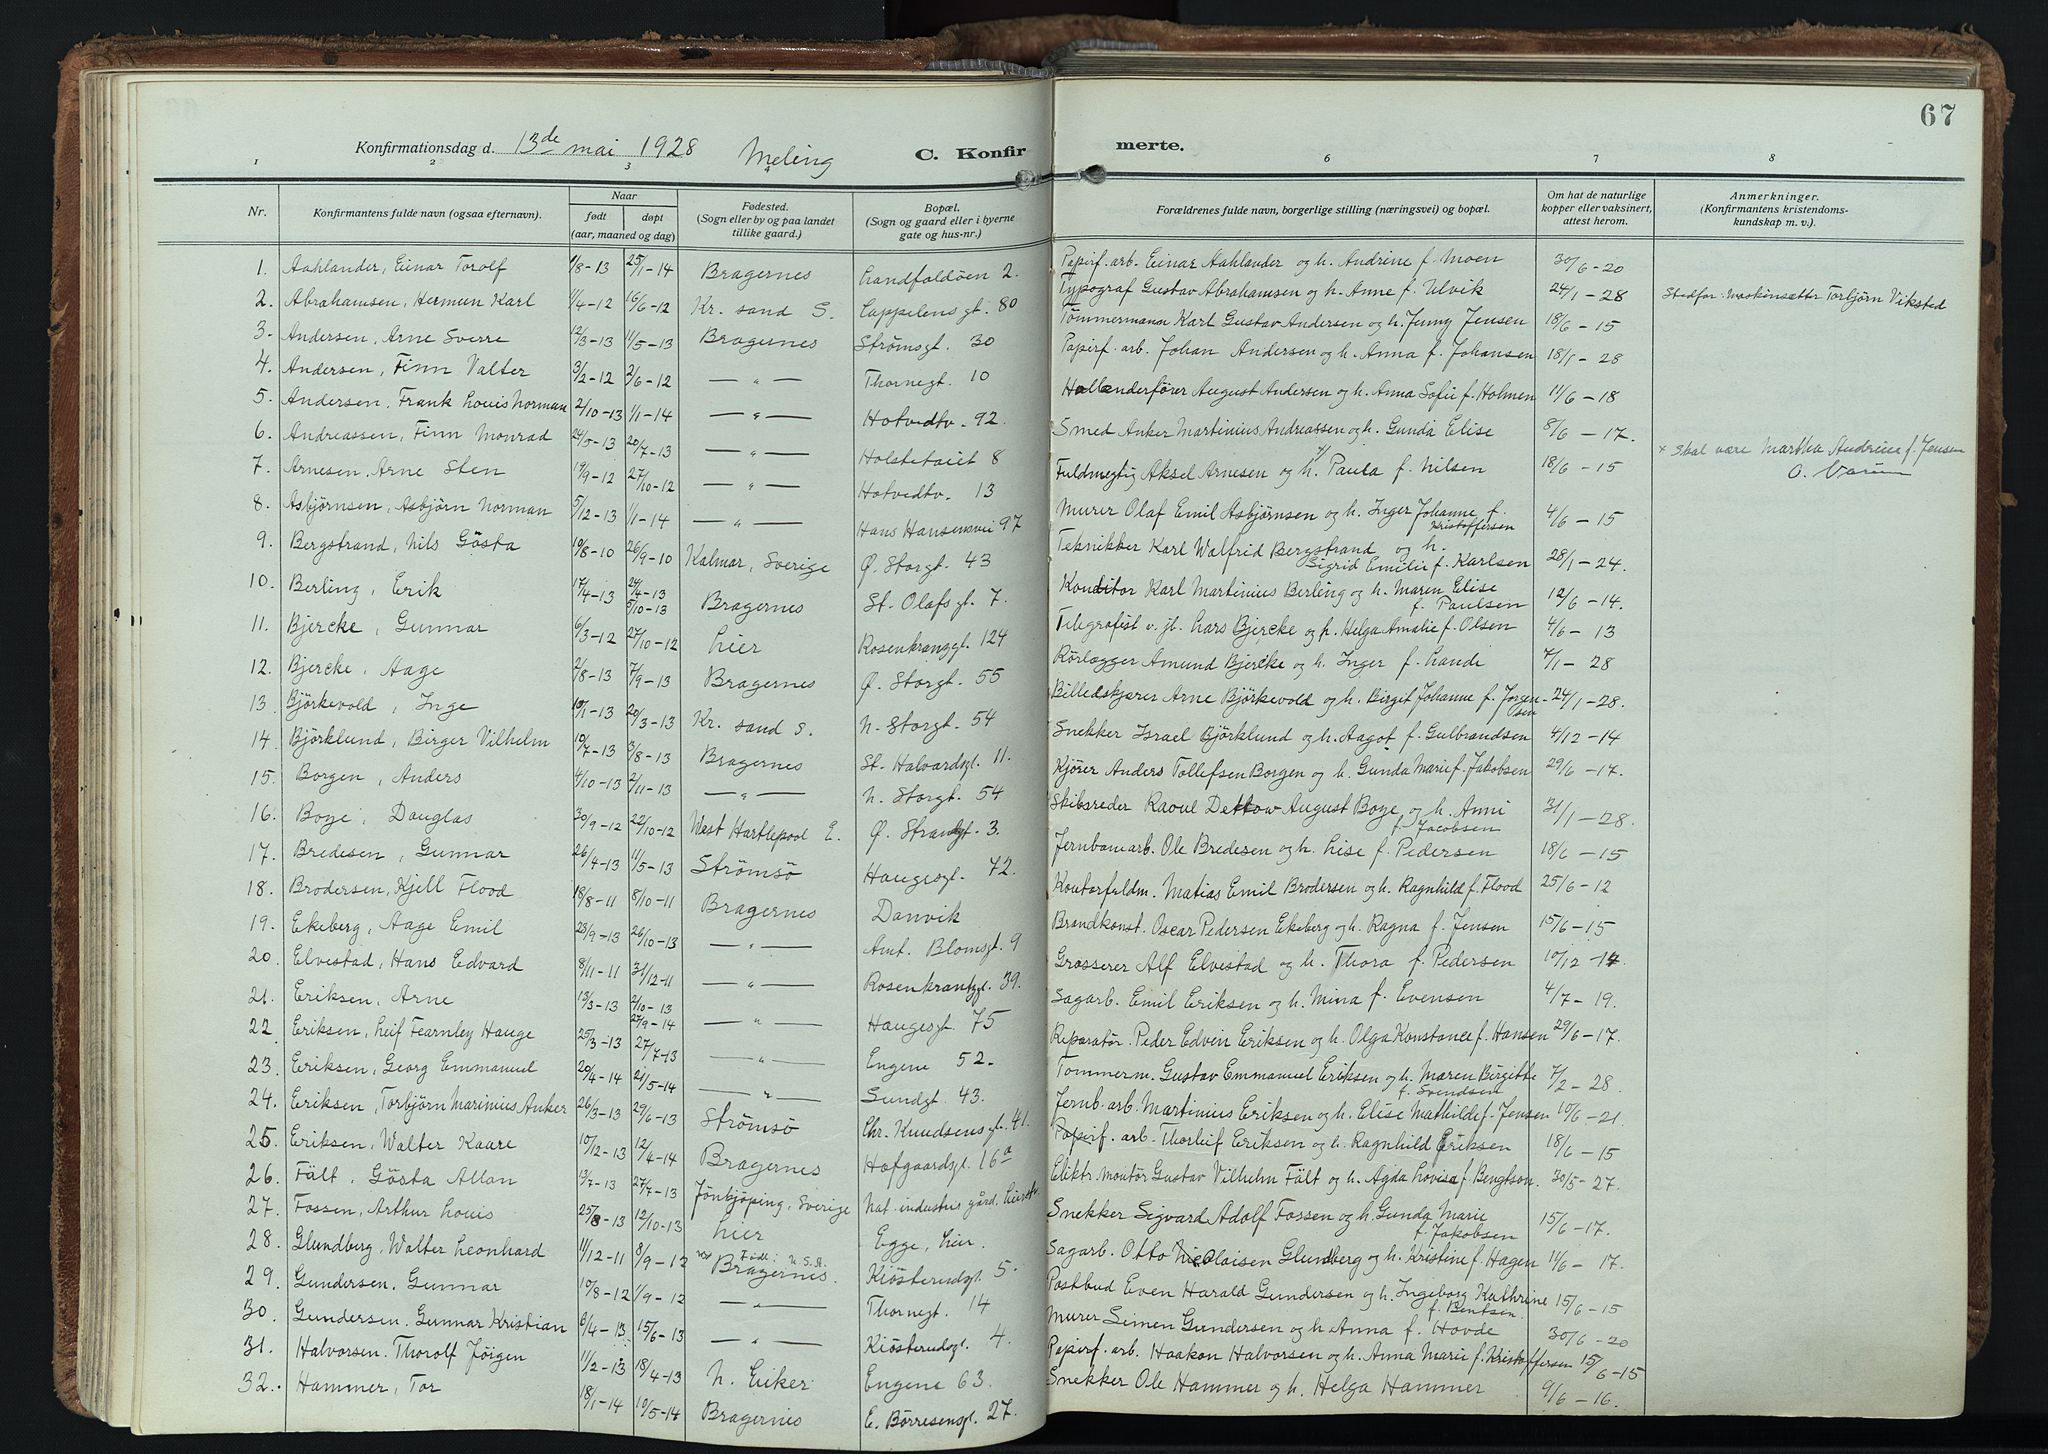 67
Konfirmationsdag d. 13de mai 1928 Meling C. Konfirmerte.
1 2 3 4 6 7 8
Nr. Konfirmantens fulde navn (ogsaa efternavn). Naar født døpt (aar, maaned og dag) Fødested. (Sogn eller by og paa landet tillike gaard.) Bopæl. (Sogn og gaard eller i byerne gate og hus-nr.) Forældrenes fulde navn, borgerlige stilling (næringsvei) og bopæl. Om hat de naturlige kopper eller vaksinert, attest herom. Anmerkninger. (Konfirmantens kristendoms-kundskap m. v.).
1. Aahlander, Einar Torolf 1/8-13 25/1-14 Bragernes Landfaldöen 2. Papirf. arb. Einar Aahlander og h. Andrine f. Moen 30/6-20
2. Abrahamsen, Herman Karl 1/4-12 16/6-12 Kr. sand S. Cappelensgt. 80 Typograf Gustav Abrahamsen og h. Anne f. Ulvik 24/1-28 Stedfar: Maskinsætter Torbjörn Viksted
3. Andersen, Arne Sverre 12/3-13 11/5-13 Bragernes Strømsgt. 30 Tömmermann Karl Gustav Andersen og h. Jenny Jensen 18/6-15
4. Andersen, Finn Valter 3/2-12 2/6-12 — " — Thornegt. 10 Papirf. arb. Johan Andersen og h. Anna f. Johansen 18/1-28
5. Andersen, Frank Louis Norman 2/10-13 1/1-14 — " — Hotvedtv. 92. Hollenderfører August Andersen og h. Anna Sofie f. Holmen 11/6-18
6. Andreassen, Finn Monrad 24/5-13 20/7-13 — " — Holstebait 8 Smed Anker Martinius Andreassen og h. Gunda Elise 8/6-17.
7. Arnesen, Arne Sten 19/9-12 27/10-12 — " — Hotvedtv. 13 Fuldmegtig Aksel Arnesen og h. Paula f. Nilsen 18/6-15 x Skal være Martha Andrine f. Jensen
8. Asbjørnsen, Asbjørn Norman 5/12-13 1/1-14 — " — Hans Hansensvei 97 Murer Olaf Emil Asbjørnsen og h. Inger Johanne f. Kristoffersen 4/6-15
9. Bergstrand, Nils Gösta 10/8-10 26/9-10 Kalmar, Sverige Ø. Storgt. 43 Teknikker Karl Walfrid Bergstrand og h. Sigrid Emilie f. Karlsen 28/1-24.
10. Berling, Erik 17/4-13 5/10-13 Bragernes St. Olafsgt. 7. Konditor Karl Martinius Berling og h. Maren Elise f. Paulsen 12/6-14.
11. Bjercke, Gunnar 6/3-12 27/10-12 Lier Rosenkranzgt. 124 Telegrafist v. jb. Lars Bjercke og h. Helga Amalie f. Olsen 4/6-13
12. Bjercke, Aage 2/8-13 7/9-13 Bragernes Ø. Storgt. 55 Rörlegger Amund Bjercke og h. Inger f. Lande 7/1-28
13. Björkevold, Inge 10/1-13 20/3-13 Kr. sand S. N. Storgt. 54 Billedskjærer Arne Björkevold og h. Birgit Johanne f. Jorgensen 24/1-28.
14. Björklund, Birger Vilhelm 10/7-13 3/8-13 Bragernes St. Halvardsgt. 11. Snekker Israel Björklund og h. Aagot f. Gulbrandsen 4/12-14
15. Borgen, Anders 4/10-13 2/11-13 — " — N. Storgt. 54 Kjører Anders Tollefsen Borgen og h. Gunda Marie f. Jakobsen 29/6-17.
16. Boye, Douglas 30/9-12 22/10-12 West Hartlepool E. Ø. Strandgt. 3. Skibsreder Raoul Dettow August Boye og h. Anni f. Jacobsen 31/1-28.
17. Bredesen, Gunnar 26/4-13 11/5-13 Strömsö Haugesgt. 42. Jernbanearb. Ole Bredesen og h. Lise f. Pedersen 18/6-15
18. Brodersen, Kjell Flood 18/8-11 8/10-11 Bragernes Danvik Kontorfuldm. Matias Emil Brodersen og h. Ragnhild f. Flood 25/6-12
19. Ekeberg, Aage Emil 23/9-13 26/10-13 — " — Amt. Blomsgt. 9 Brandkonst. Oscar Pedersen Ekeberg og h. Ragna f. Jensen 15/6-15
20. Elvestad, Hans Edvard 8/11-11 31/12-11 — " — Rosenkrantzgt. 39. Grosserer Alf Elvestad og h. Thora f. Pedersen 10/12-14
21. Eriksen, Arne 13/3-13 2/10-13 — " — Haugesgt. 75 Sagarb. Emil Eriksen og h. Mina f. Evensen 4/7-19.
22. Eriksen, Leif Fearnley Hauge 25/3-13 27/7-13 — " — Engene 52. Reparatør. Peder Edvin Eriksen og h. Olga Konstance f. Hansen 29/6-17.
23. Eriksen, Georg Emmanuel 20/4-14 21/5-14 — " — Sundgt. 43. Tommerm. Gustav Emmanuel Eriksen og h. Maren Birgitte f. Svendsen 7/2-28.
24. Eriksen, Torbjörn Marinius Anker 26/3-13 29/6-13 Strömsö Chr. Knudsensgt. 41. Jernb. arb. Martinius Eriksen og h. Elise Mathilde f. Jensen 10/6-21
25. Eriksen, Walter Kaare 10/12-13 12/4-14 Bragernes Hofgaardsgt. 16a Papirf. arb. Thorleif Eriksen og h. Ragnhild Eriksen 18/6-15
26. Fält, Gösta Allan 13/7-13 27/7-13 Jönkjöping, Sverige Nat. industris gård. Lierstr. Elektr. montör Gustav Vilhelm Fält og h. Agda Lovisa f. Bengtson. 30/5-27.
27. Fossen, Arthur Louis 25/8-13 12/10-13 Lier Egge, Lier. Snekker Sigvard Adolf Fossen og h. Gunda Marie f. Jakobsen 15/6-17.
28. Glundberg, Walter Leonhard 11/12-11 8/9-12 Født: U.S.A. Bragernes. Kiösterudgt. 5. Sagarb. Otto Nicolaisen Glundberg og h. Kristine f. Hagen 11/6-17.
29. Gundersen, Gunnar 10/8-12 1/9-12 — " — Thornegt. 14 Postbud Even Harald Gundersen og h. Ingeborg Kathrine f. Bentsen 15/6-15
30. Gundersen, Gunnar Kristian 6/4-13 15/6-13 — " — Kiösterudgt. 4. Murer Simen Gundersen og h. Anna f. Hovde 30/6-20
31. Halvorsen, Thorolf Jörgen 11/2-13 18/4-13 N. Eiker Engene 63. Papirf. arb. Haakon Halvorsen og h. Anna Marie f. Kristoffersen 15/6-15
32. Hammer, Tor 18/1-14 10/5-14 Bragernes E. Börresensgt. 27. Snekker Ole Hammer og h. Helga Hammer 9/6-16.